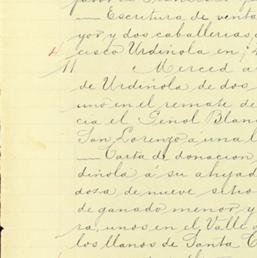 — Escritura de venta
yor y dos caballerias
cisco Urdiñola en
11 Merced a
de Urdiñola de dos
uno en el remate de
cia el Señol Blan
San Lorenzo á una l
— Carta de donacion
diñola a su ahijad
dosa de nueve sitio
de ganado menor y
ra, unos en el Valle d
los llanos de Santa C